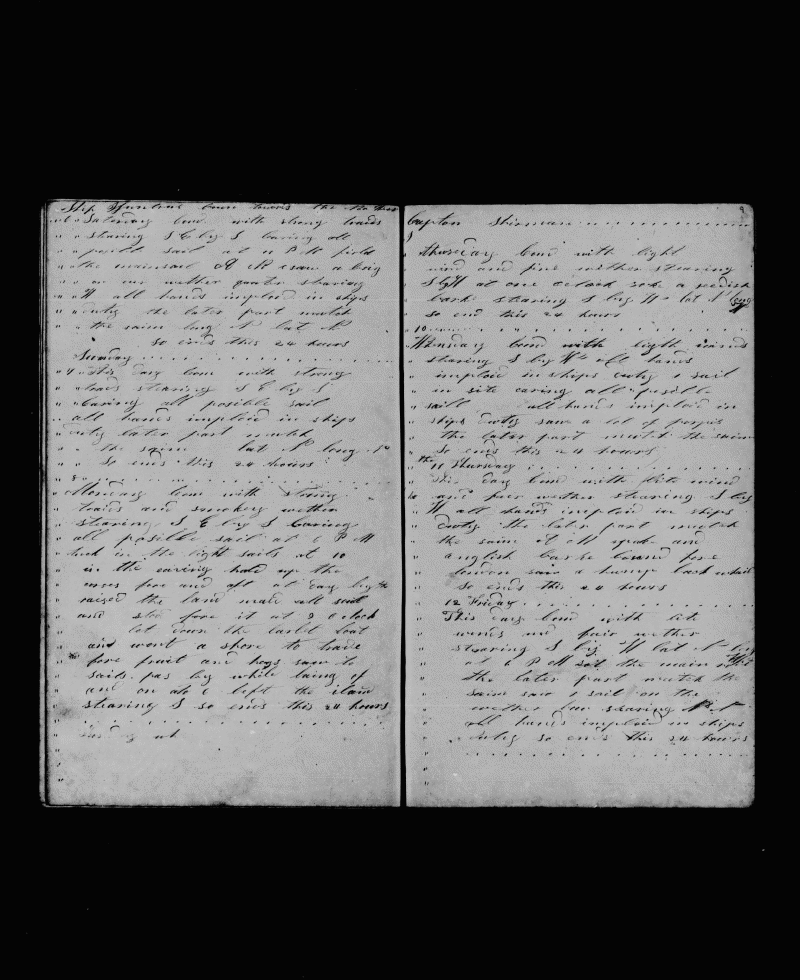 Ship bown towards the
6 Saterday Comd with strong traids
stearing S E by S caring all
posible sail at P M
the mainsail saw a brig
on our wether quater stearing
W all hands imploid in ships
duty the later part mutch
the saim long lat
So ends this 24 hours
Sunday
This day Comd with strong
traids stearing S E by S
Caring all posible sail
all hands imploid in ships
duty later part mutch
the saim lat long
So ends this 24 hours
8
Monday Comd with strong
traids and smokery wether
stearing S E by S Caring
all posible sail at 6 P M
tuck in the light sails at 10
in the evring hald up the
corses fore and aft at day light
raised the land made all sail
and stod fore it at 9 O clock
let down the larbd boat
and went a shore to trade
fore fruit and hogs saw to
sails pas by while laing of
and on at 6 left the ilan
stearing S so ends this 24 hours
9
Capton Shirman
thursday Comd with light
wind and fine wether stearing
S by W at one oclock spoke a
bark stearing S by W lat long
so end this 24 hours
10
Wensday Comd with ligth winds
stearing S by W all hands
imploid in ships duty sail
in site caring all posible
saill all hands imploid in
ships duty saw a lot of porpus
the later part mutch the saim
So ends this 24 hours
11 Thursday
This day Comd with lite wind
and fair wether stearing S by
W all hands imploid in ships
duty the later part mutch
the saim at M spoke and
a nglish barke bound fore
london saw a hump back whail
so ends this 24 hours
12 Friday
This day Comd with lite
winds and fair wether
stearing S by W lat long
at 6 P M the main
the later part mutch the
saim saw 1 sail on the
wether bow stearing
All hands imploid in ships
duty so ends this 24 hours